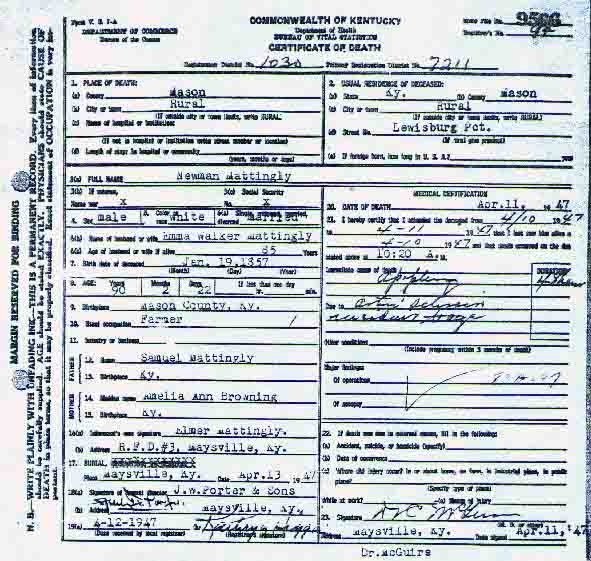 Form V. S. 1-A
DEPARTMENT OF COMMERCE
Bureau of the Census
COMMONWEALTH OF KENTUCKY
Department of Health
BUREAU OF VITAL STATISTICS
CERTIFICATE OF DEATH
State File No. 9566
Registrar's No.
Registration District No. 1030 Primary Registration District No. 7211
MARGIN RESERVED FOR BINDING
N. B.—WRITE PLAINLY WITH UNFADING INK—THIS IS A PERMANENT RECORD. Every item of information
should be carefully supplied. AGE should be stated EXACTLY. PHYSICIANS should state CAUSE OF
DEATH in plain terms, so that it may be properly classified. Exact statement of OCCUPATION is very im-
portant.
1. PLACE OF DEATH:
(a) County Mason
(b) City or town Rural
(If outside city or town limits, write RURAL)
(c) Name of hospital or institution:
(If not in hospital or institution write street number or location)
(d) Length of stay: In hospital or community
(years, months or days)
2. USUAL RESIDENCE OF DECEASED:
(a) State Ky. (b) County Mason
(c) City or town Rural
(If outside city or town limits, write RURAL)
(d) Street No. Lewisburg Pct.
(If rural give precinct)
(e) If foreign born, how long in U. S. A.? years
3(a) FULL NAME Newman Mattingly
3(b) If veteran, 3(c) Social Security
Name war x No. x
4. Sex male 5. Color or race white 6(a) Single, widowed, married, divorced married
6(b) Name of husband or wife Emma Walker Mattingly
6(c) Age of husband or wife if alive 85 Years
7. Birth date of deceased Jan. 19, 1857
(Month) (Day) (Year)
8. AGE: Years Months Days If less than one day
90 2 22 hr. min.
9. Birthplace Mason County, Ky.
10. Usual occupation Farmer
11. Industry or business
FATHER
12. Name Samuel Mattingly
13. Birthplace Ky.
MOTHER
14. Maiden name Amelia Ann Browning
15. Birthplace Ky.
16(a) Informant's own signature Elmer Mattingly.
(b) Address R.F.D.#3, Maysville, Ky.
17. BURIAL
Place Maysville, Ky. Date Apr.13 1947
18(a) Signature of funeral director J.W.Porter & Sons
(b) Address Maysville, Ky.
19(a) 4-12-1947 (b)
(Date received by local registrar) (Registrar's signature)
MEDICAL CERTIFICATION
20. DATE OF DEATH Apr.11, 1947
21. I hereby certify that I attended the deceased from 4/10 1947
to 4-11 1947 that I last saw him alive on
4-10 1947 and that death occurred on the date
stated above at 10:20 A.M.
Immediate cause of death
DURATION
Due to
Other conditions
(Include pregnancy within 3 months of death)
Major findings
Of operations
Of autopsy
22. If death was due to external causes, fill in the following:
(a) Accident, suicide, or homicide (specify)
(b) Date of occurrence
(c) Where did injury occur? in or about home, on farm, in industrial place, in public
place?
(Specify type of place)
While at work? (e) Means of injury
23. Signature
Address Maysville, Ky. Date signed Apr.11, '47
Dr.McGuire